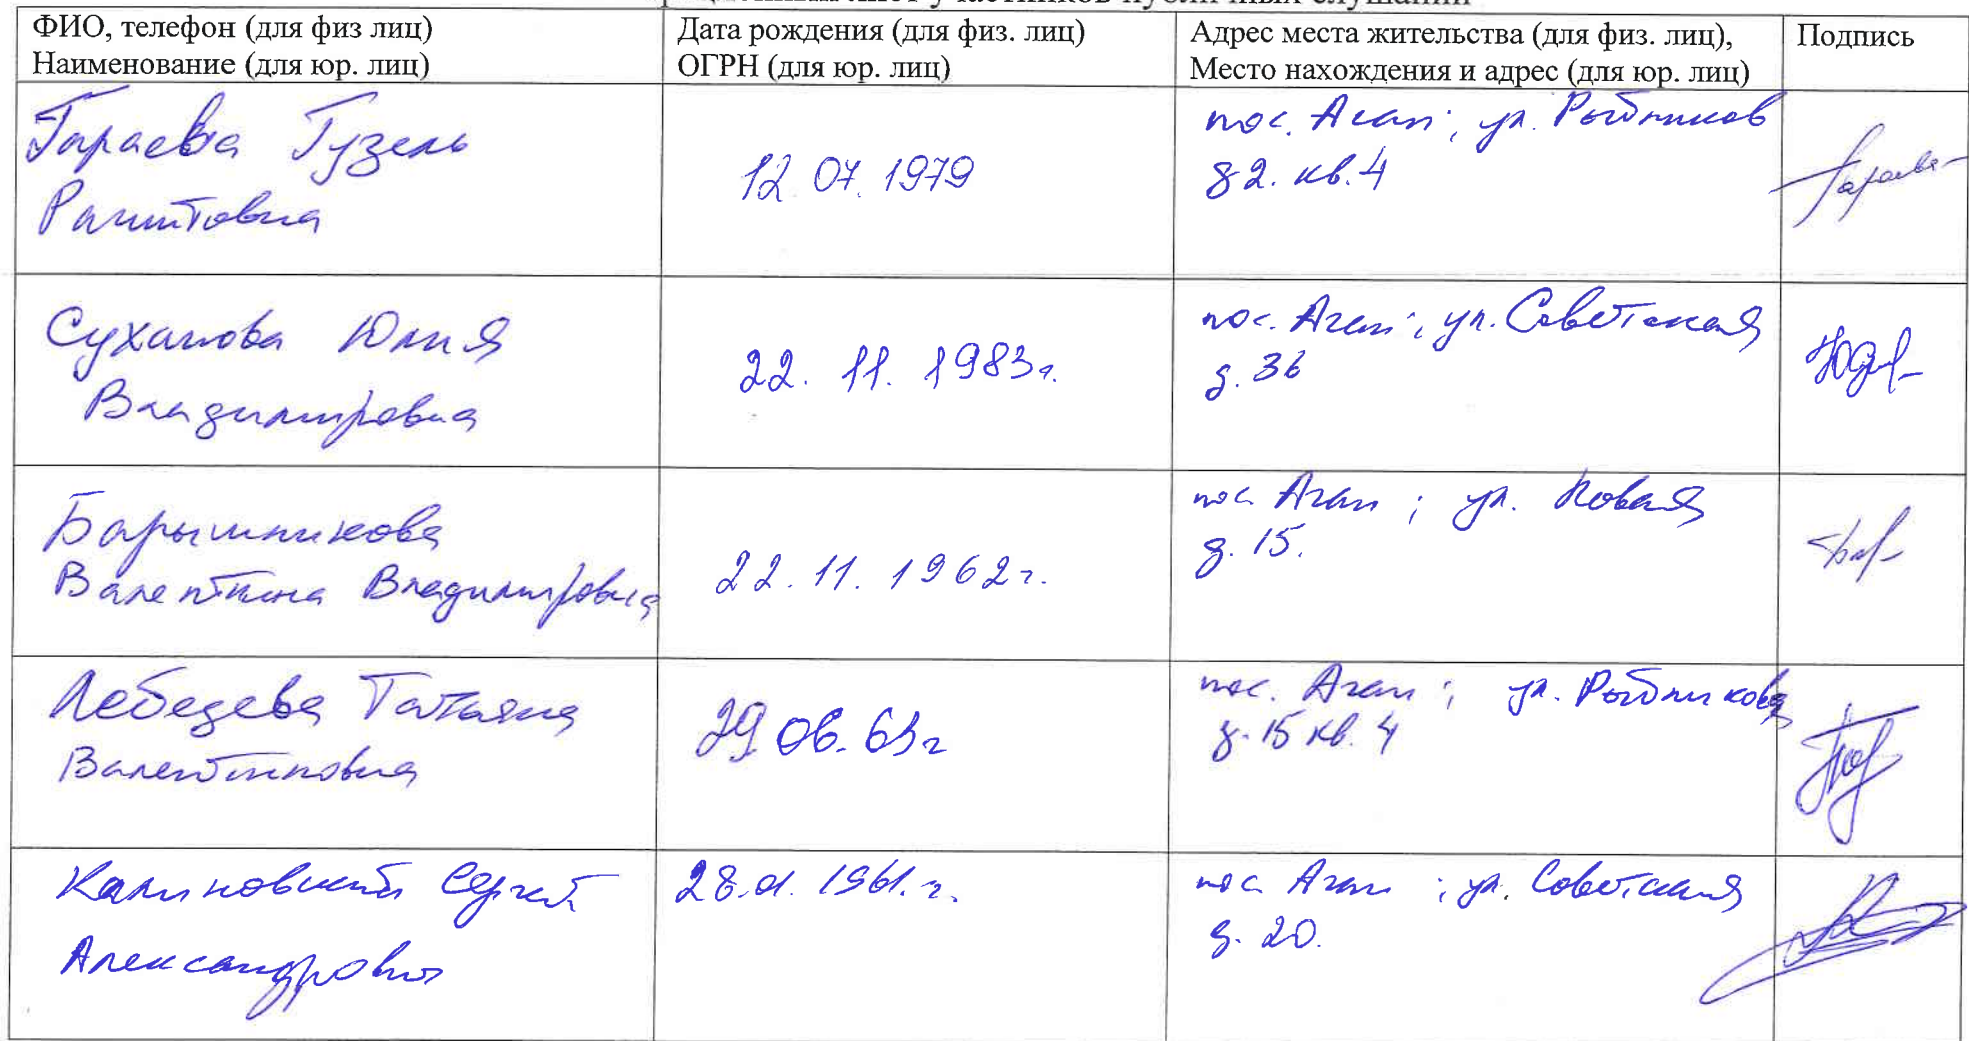 участников публичных слушаний
ФИО, телефон (для физ лиц)
Наименование (для юр. лиц)
Дата рождения (для физ. лиц)
ОГРН (для юр. лиц)
Адрес места жительства (для физ. лиц),
Место нахождения и адрес (для юр. лиц)
Подпись
Гараева Гузель
12.07.1979
пос. Аган, ул. Рыбников
д2. кв.4
Суханова Юлия
Владимировна
22. 11. 1983г.
пос. Аган, ул. Советская
д. 36
Барышникова
Валентина Владимировна
22.11.1962г.
пос. Аган, ул. Новая
д. 15.
Лебедева Татьяна
Валентиновна
29.06.63г
пос. Аган, ул. Рыбникова
д. 15 кв. 4
Калиновский Сергей
Александрович
28.01.1961.г.
пос. Аган, ул. Советская
д. 20.